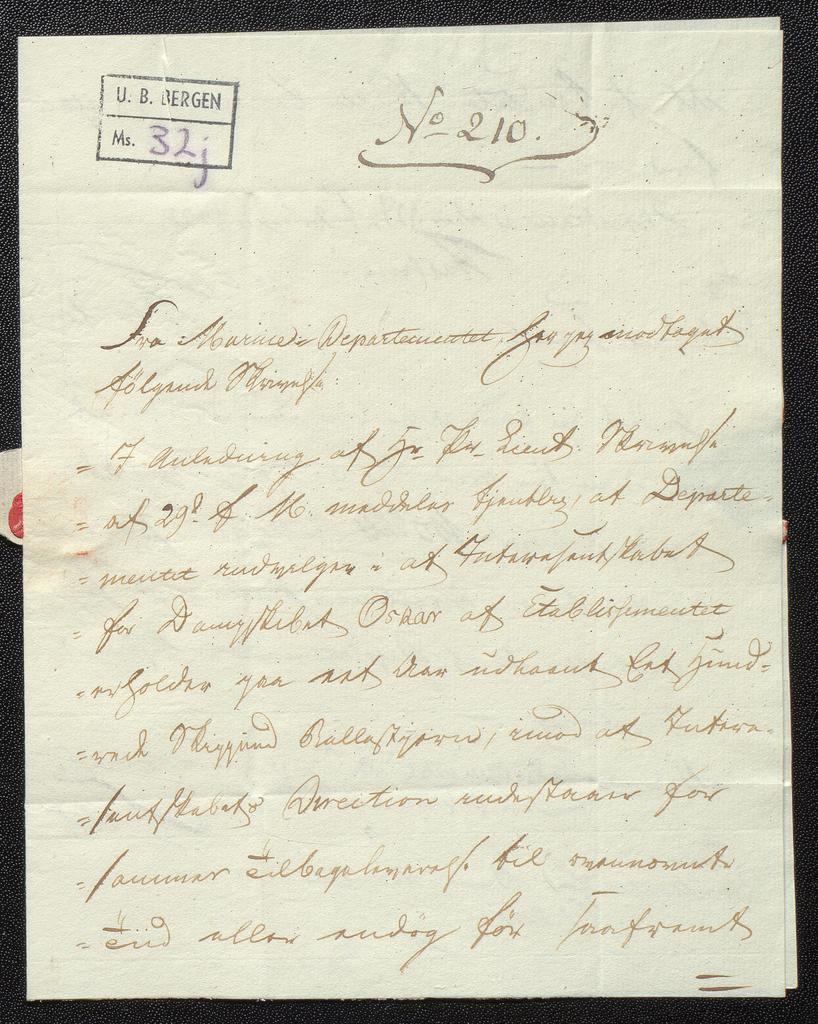 U. B. BERGEN
Ms. 32j
No 210.
Fra Marine-Departementet har jeg modtaget
følgende Skrivelse:
= I Anledning af Hr. Pr. Lieut. Skrivelse
= af 29de f. M. meddeles tjenstlig, at Departe-
= mentet indvilger i at Interesentskabet
= for Dampskibet Oskar af Etablissementet
= erholder paa eet Aar udlaant Eet Hund-
= rede Skippund Ballastjern, imod at Intere-
= sentskabets Direction indestaaer for
= sammes Tilbageleverelse til ovennævnte
= Tiid eller endog før saafremt